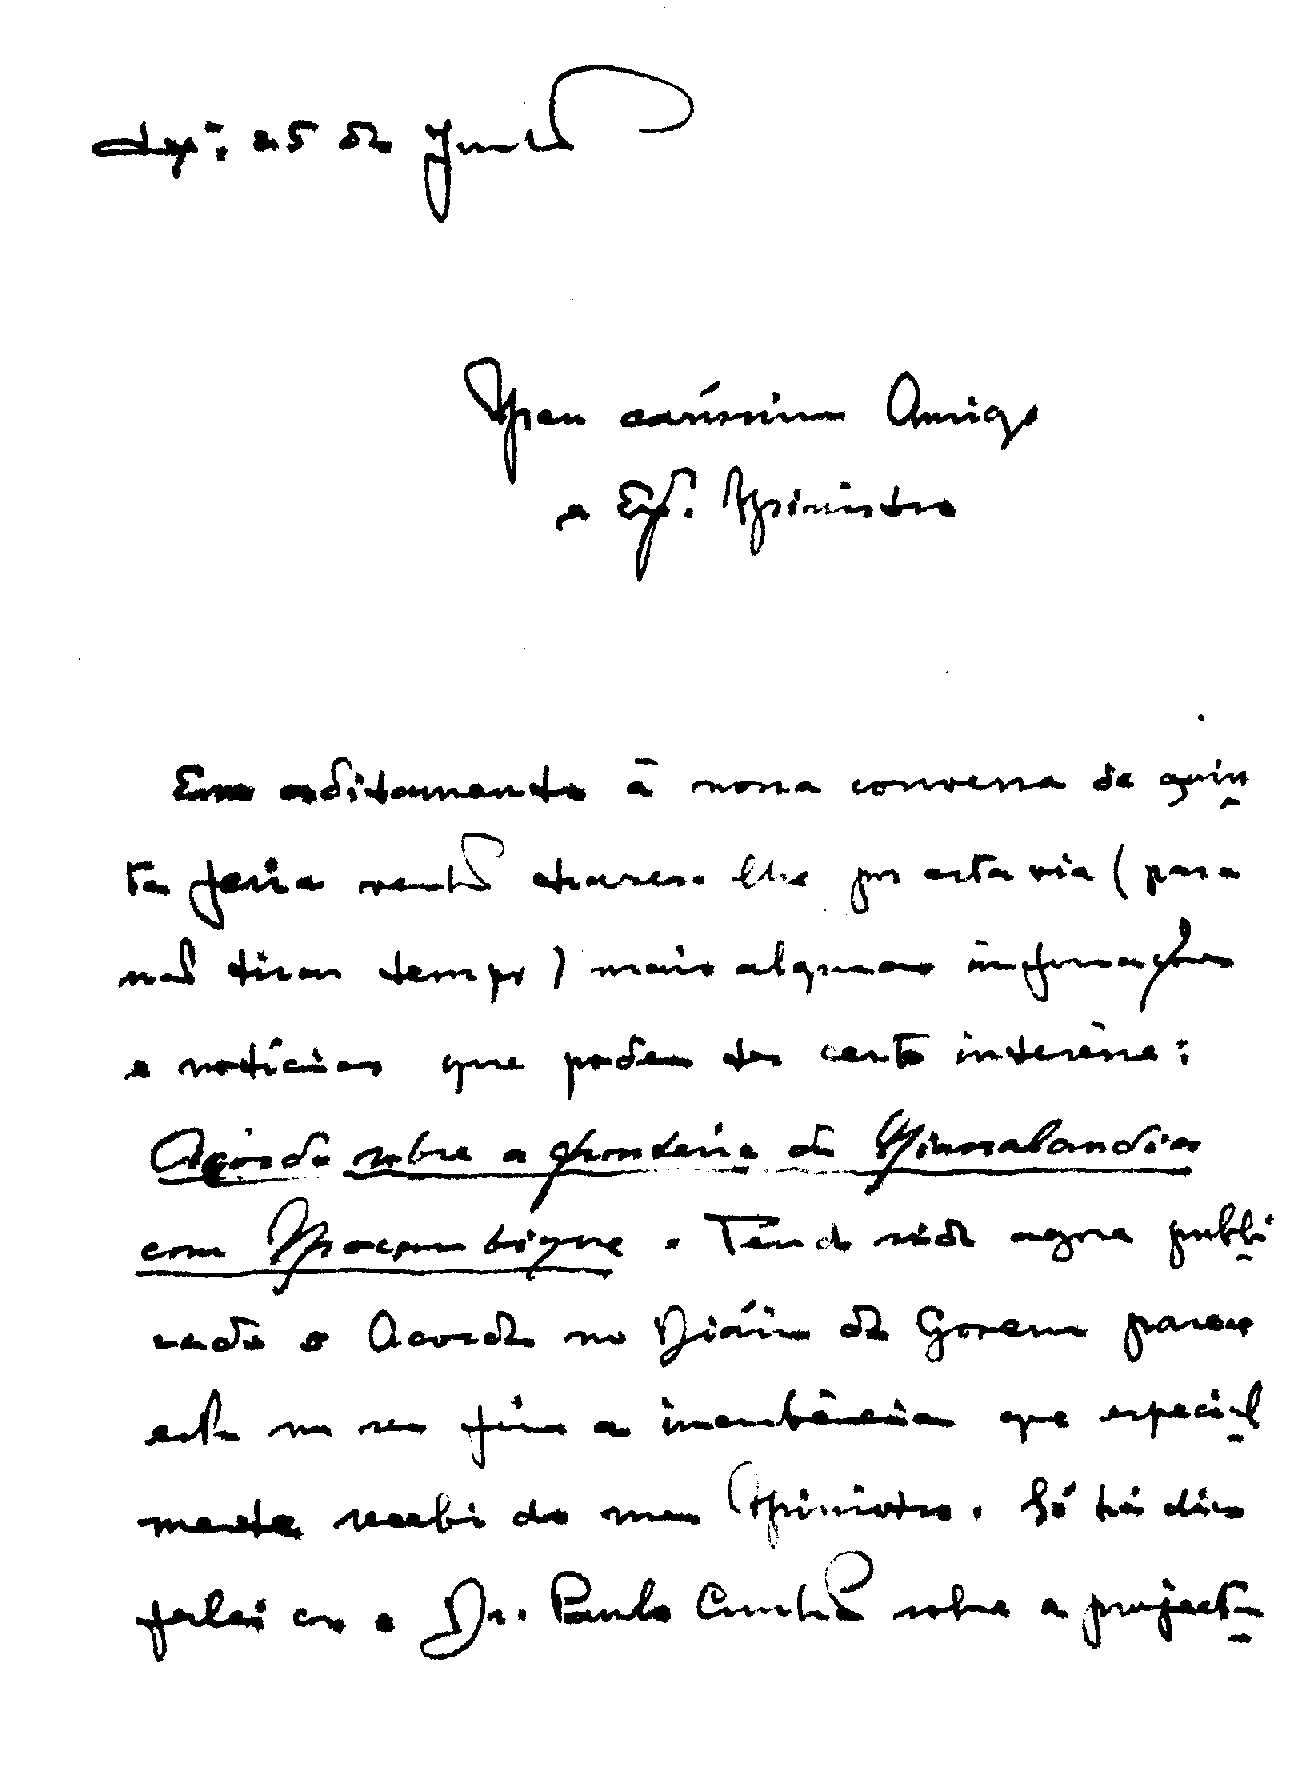 25 de Junho
Meu caríssimo Amigo
e Exº. Ministro
Em aditamento à nossa conversa de quin
ta feira venho dizer-lhe por esta via (para
não tirar tempo) mais algumas informações
e notícias que podem ter certo interêsse:
Acôrdo sobre a fronteira da Niassalandia
com Moçambique. Tendo sido agora publi
cado o Acordo no Diário do Governo parece
estar no seu fim a incumbência que especial
mente recebi do meu Ministro. Só há dias
falei com o Dr. Paulo Cunha sobre a projecta